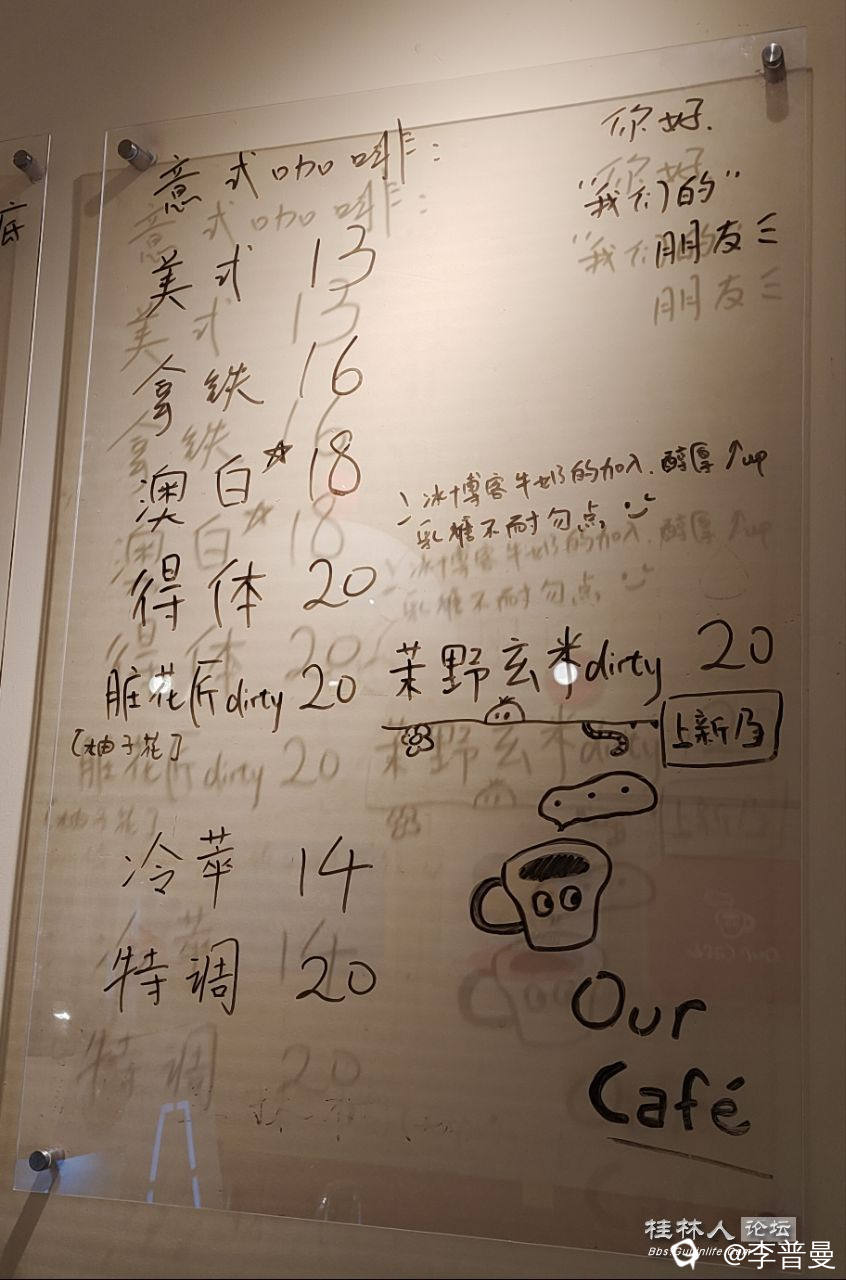 你好.
"我们的"
朋友三
意式咖啡:
美式 13
拿铁 16
澳白☆ 18
冰博客牛奶的加入.醇厚↑up
乳糖不耐勿点
得体 20
脏花匠dirty 20
[柚子花]
茉野玄米dirty 20
上新乃
冷萃 14
特调 20
Our
Café
底
桂林人论坛
Bbs.Guilinlife.Com
@李普曼